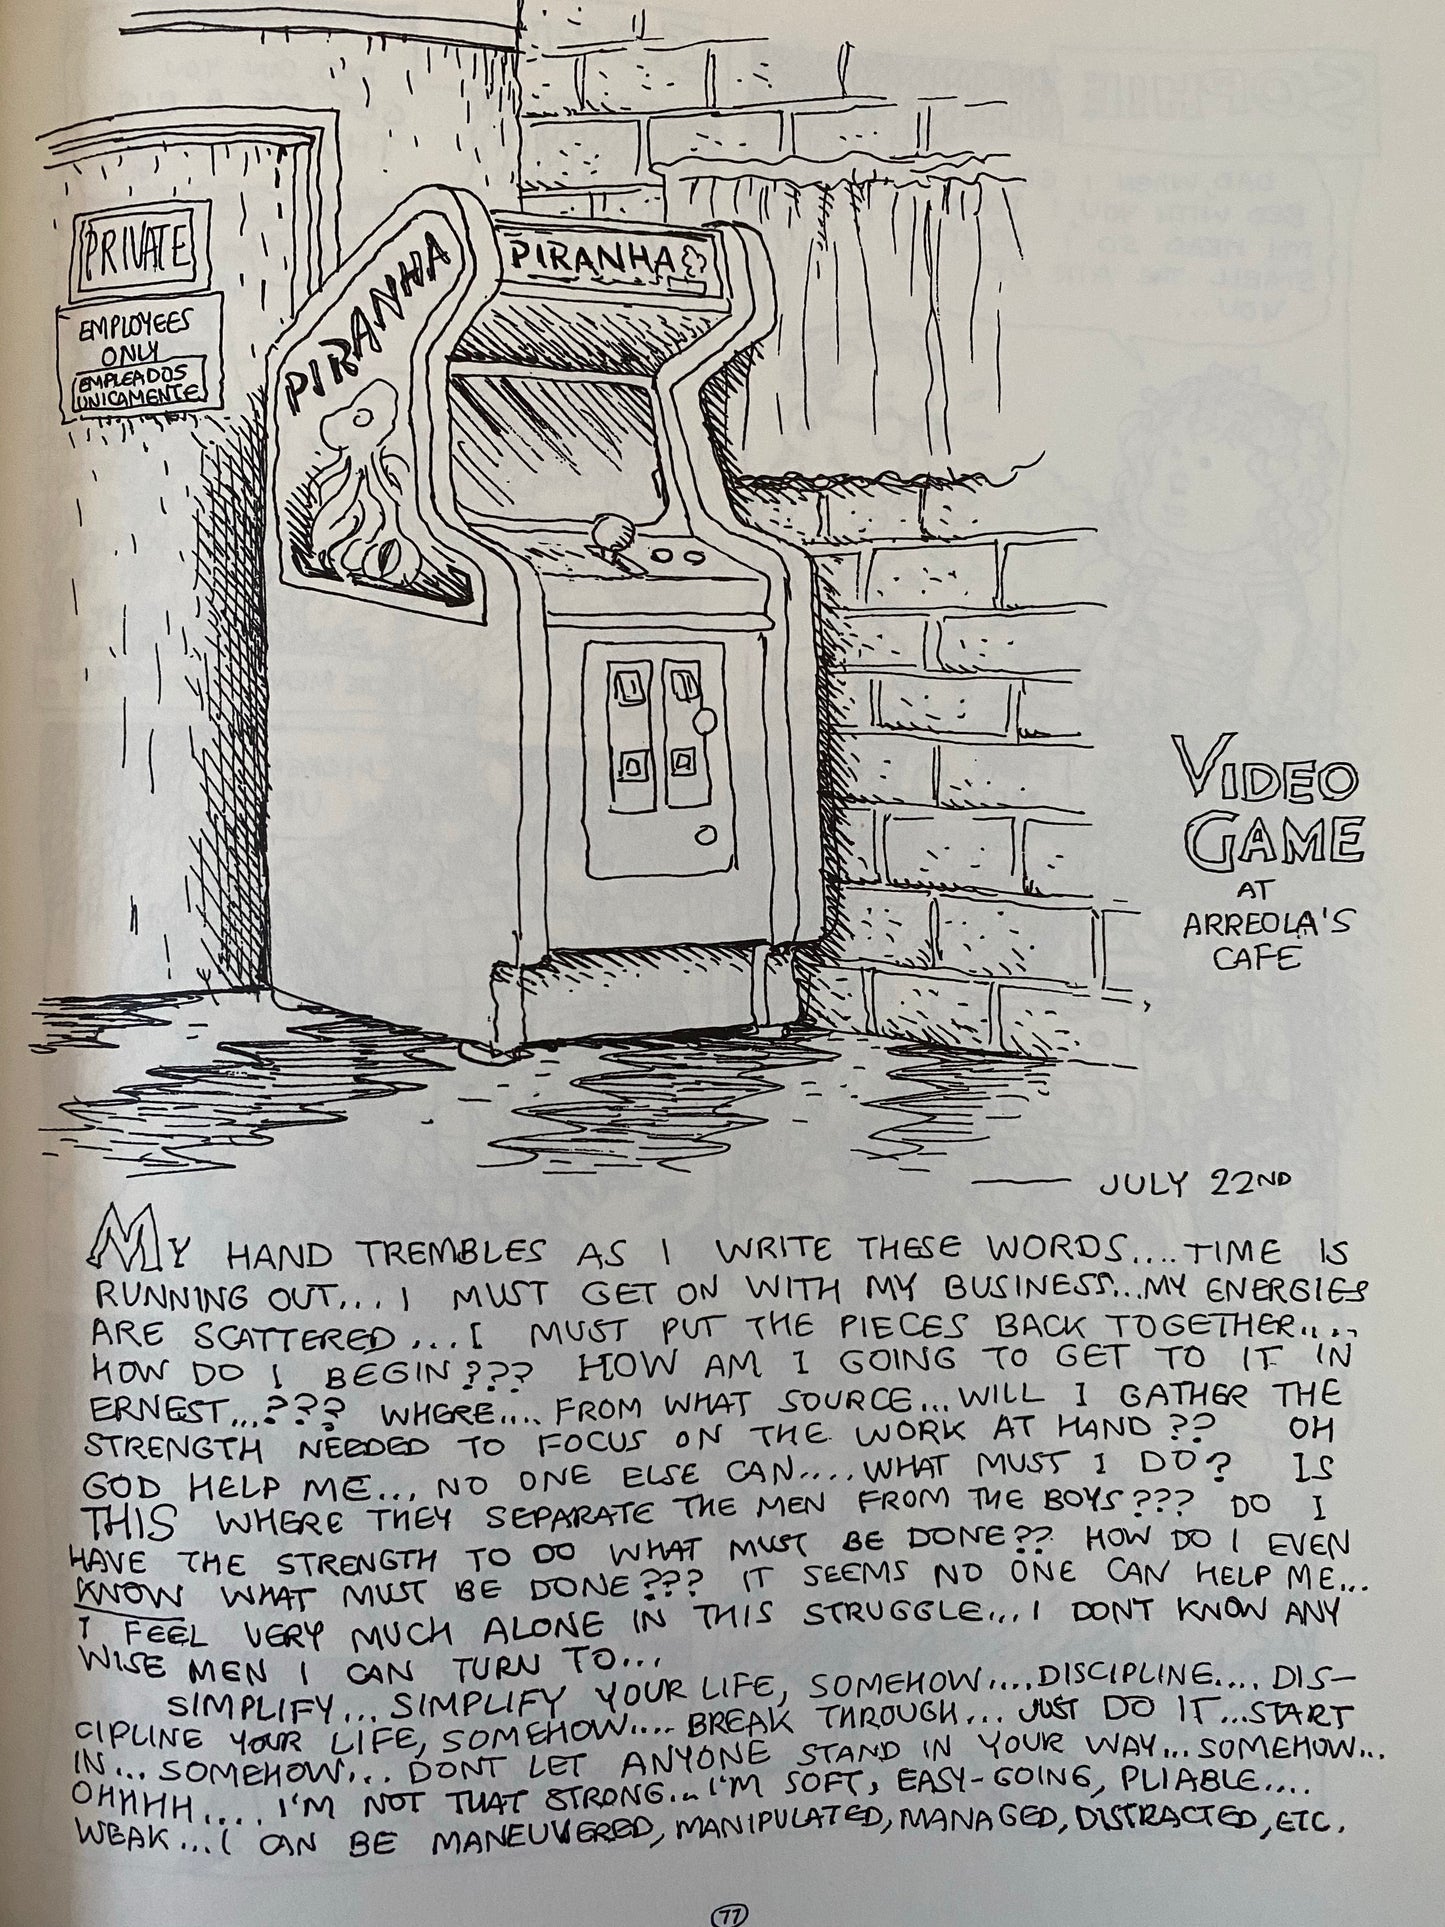 PRIVATE
EMPLOYEES
ONLY
EMPLEADOS
UNICAMENTE
PIRANHA
PIRANHA
VIDEO
GAME
AT
ARREOLA'S
CAFE
— JULY 22ND
MY HAND TREMBLES AS I WRITE THESE WORDS.... TIME IS
RUNNING OUT.... I MUST GET ON WITH MY BUSINESS...MY ENERGIES
ARE SCATTERED....I MUST PUT THE PIECES BACK TOGETHER....
HOW DO I BEGIN??? HOW AM I GOING TO GET TO IT IN
ERNEST...??? WHERE.... FROM WHAT SOURCE...WILL I GATHER THE
STRENGTH NEEDED TO FOCUS ON THE WORK AT HAND?? OH
GOD HELP ME... NO ONE ELSE CAN....WHAT MUST I DO? IS
THIS WHERE THEY SEPARATE THE MEN FROM THE BOYS??? DO I
HAVE THE STRENGTH TO DO WHAT MUST BE DONE?? HOW DO I EVEN
KNOW WHAT MUST BE DONE??? IT SEEMS NO ONE CAN HELP ME...
I FEEL VERY MUCH ALONE IN THIS STRUGGLE...I DONT KNOW ANY
WISE MEN I CAN TURN TO...
SIMPLIFY... SIMPLIFY YOUR LIFE, SOMEHOW....DISCIPLINE.... DIS-
CIPLINE YOUR LIFE, SOMEHOW.... BREAK THROUGH... JUST DO IT...START
IN... SOMEHOW... DONT LET ANYONE STAND IN YOUR WAY...SOMEHOW...
OHHHH.... I'M NOT THAT STRONG... I'M SOFT, EASY-GOING, PLIABLE....
WEAK...I CAN BE MANEUVERED, MANIPULATED, MANAGED, DISTRACTED, ETC.
77